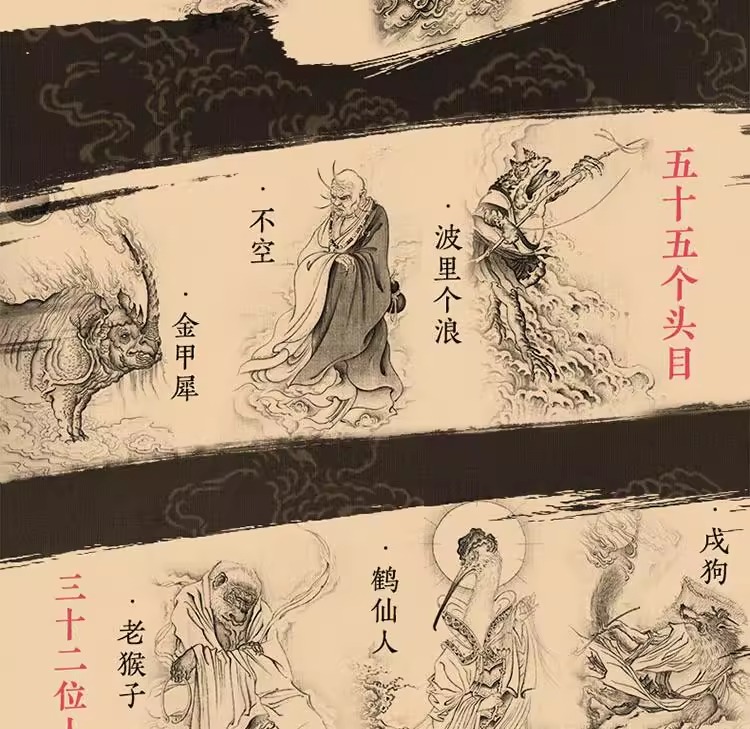 五十五个头目
·波里个浪
·不空
·金甲犀
·戌狗
·鹤仙人
·老猴子
三十二位